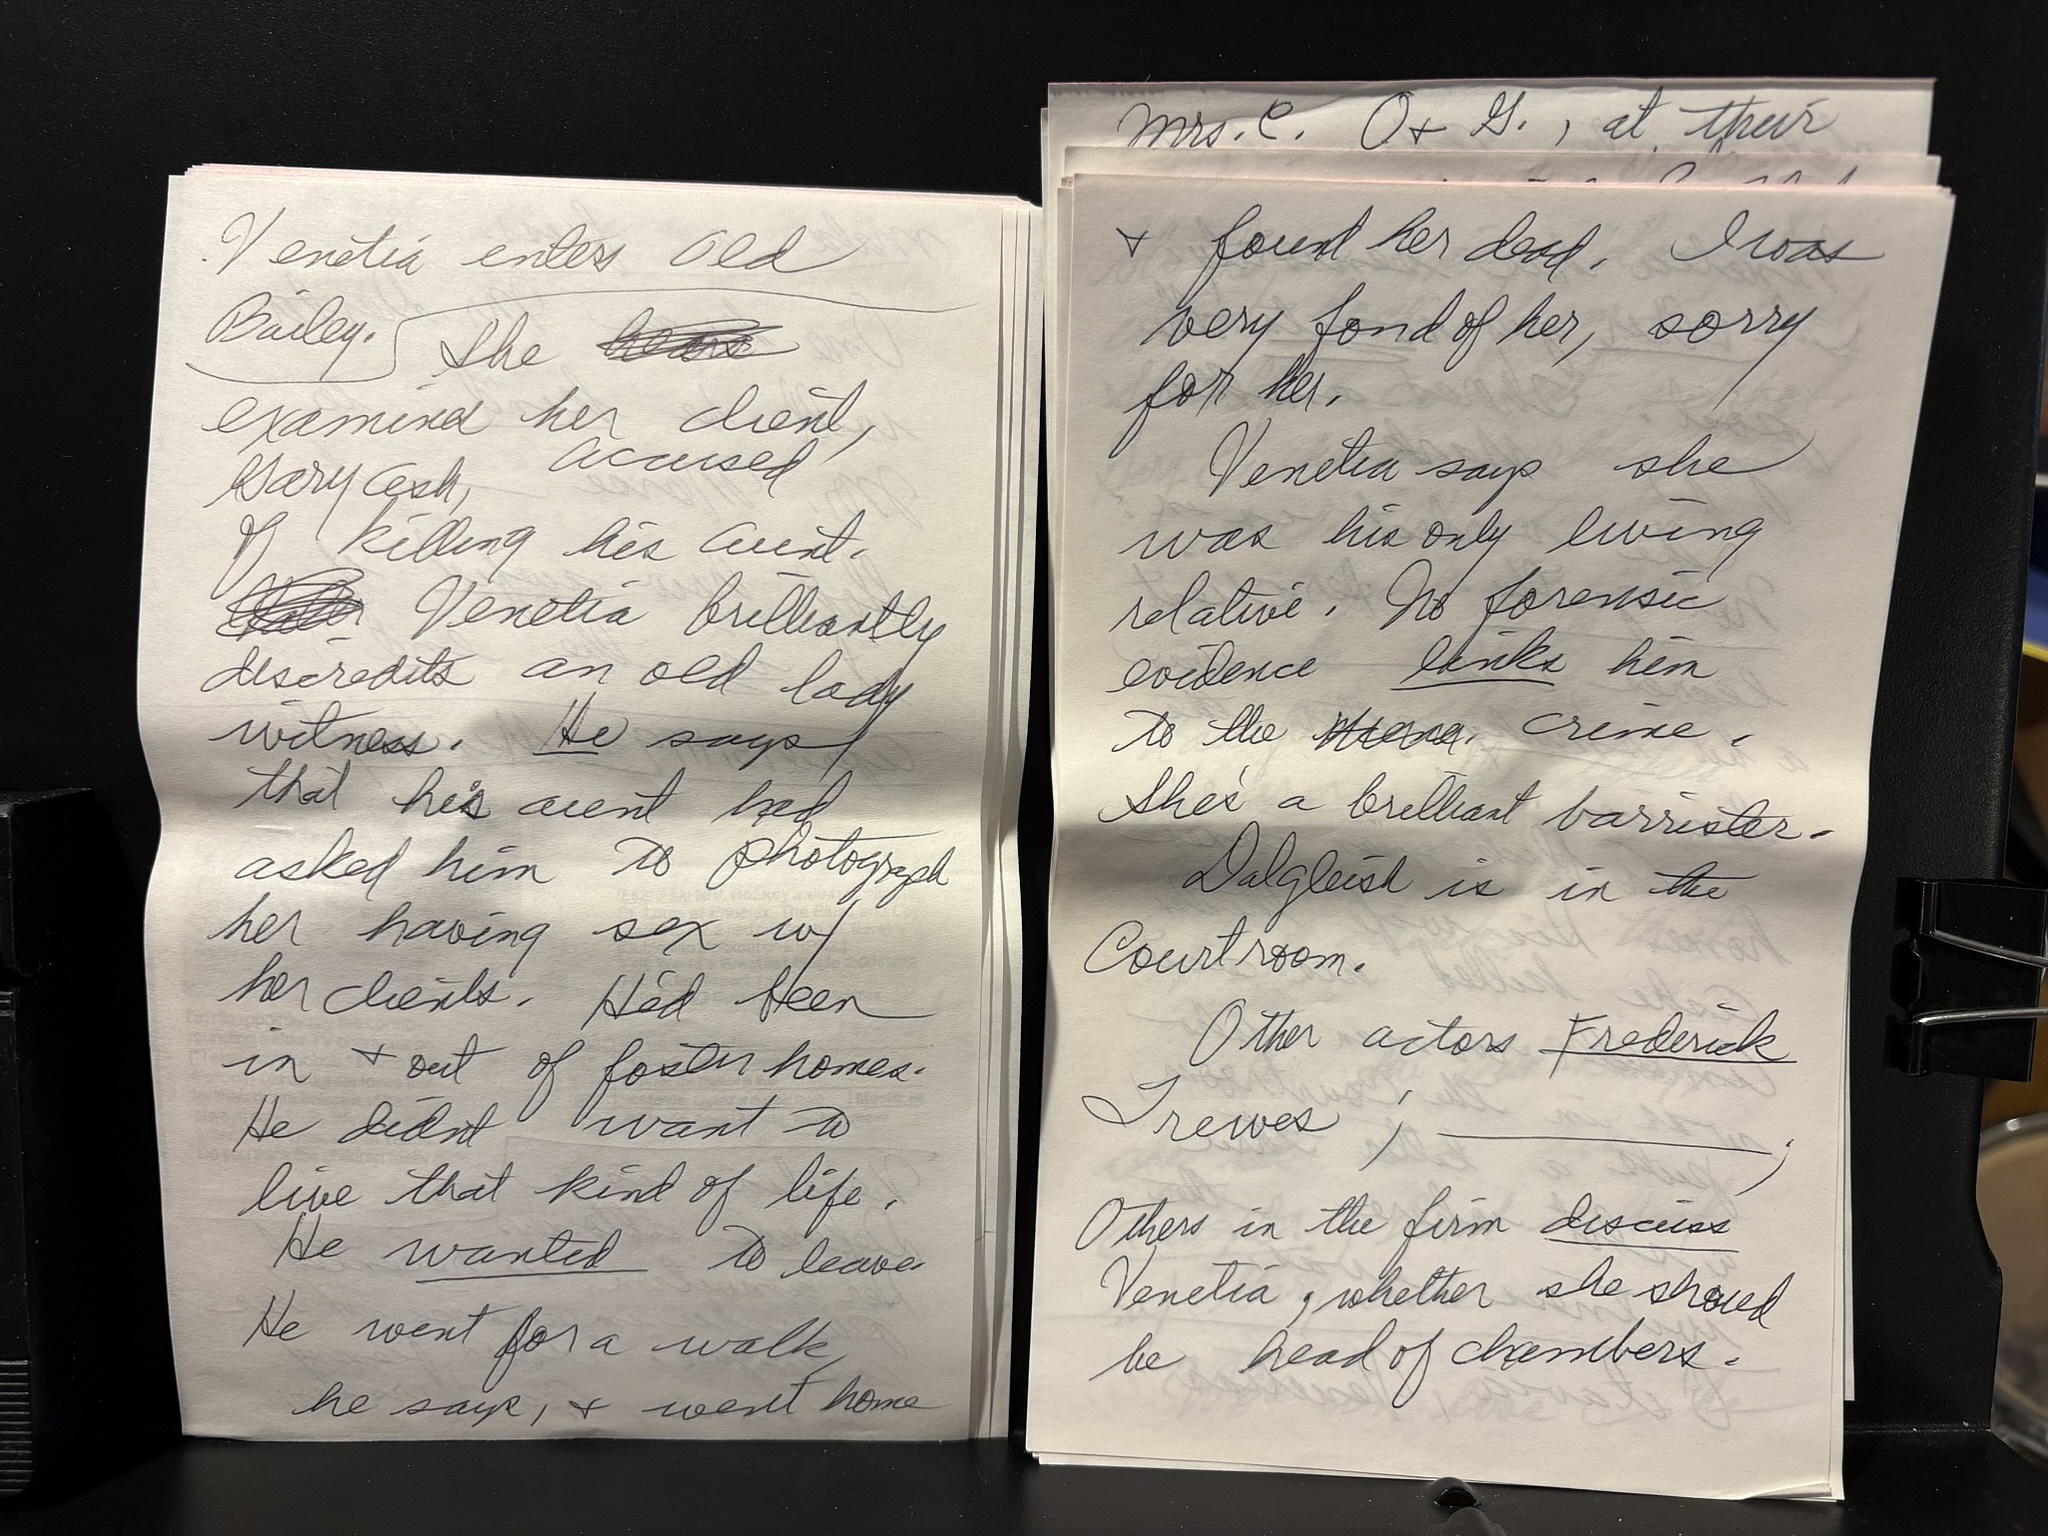 Venetia enters Old
Bailey. She
examined her client,
Gary Ash, accused
of killing his aunt.
Venetia brilliantly
discredits an old lady
witness. He says
that his aunt had
asked him to photograph
her having sex w/
her clients. He'd been
in + out of foster homes.
He didn't want to
live that kind of life.
He wanted to leave.
He went for a walk,
he says, + went home
Mrs. C. O + G., at their
+ found her dead. I was
very fond of her, sorry
for her.
Venetia says she
was his only living
relative. No forensic
evidence links him
to the crime.
She's a brilliant barrister.
Dalgleish is in the
Courtroom.
Other actors Frederick
Trewes ; ;
Others in the firm discuss
Venetia, whether she should
be head of chambers.